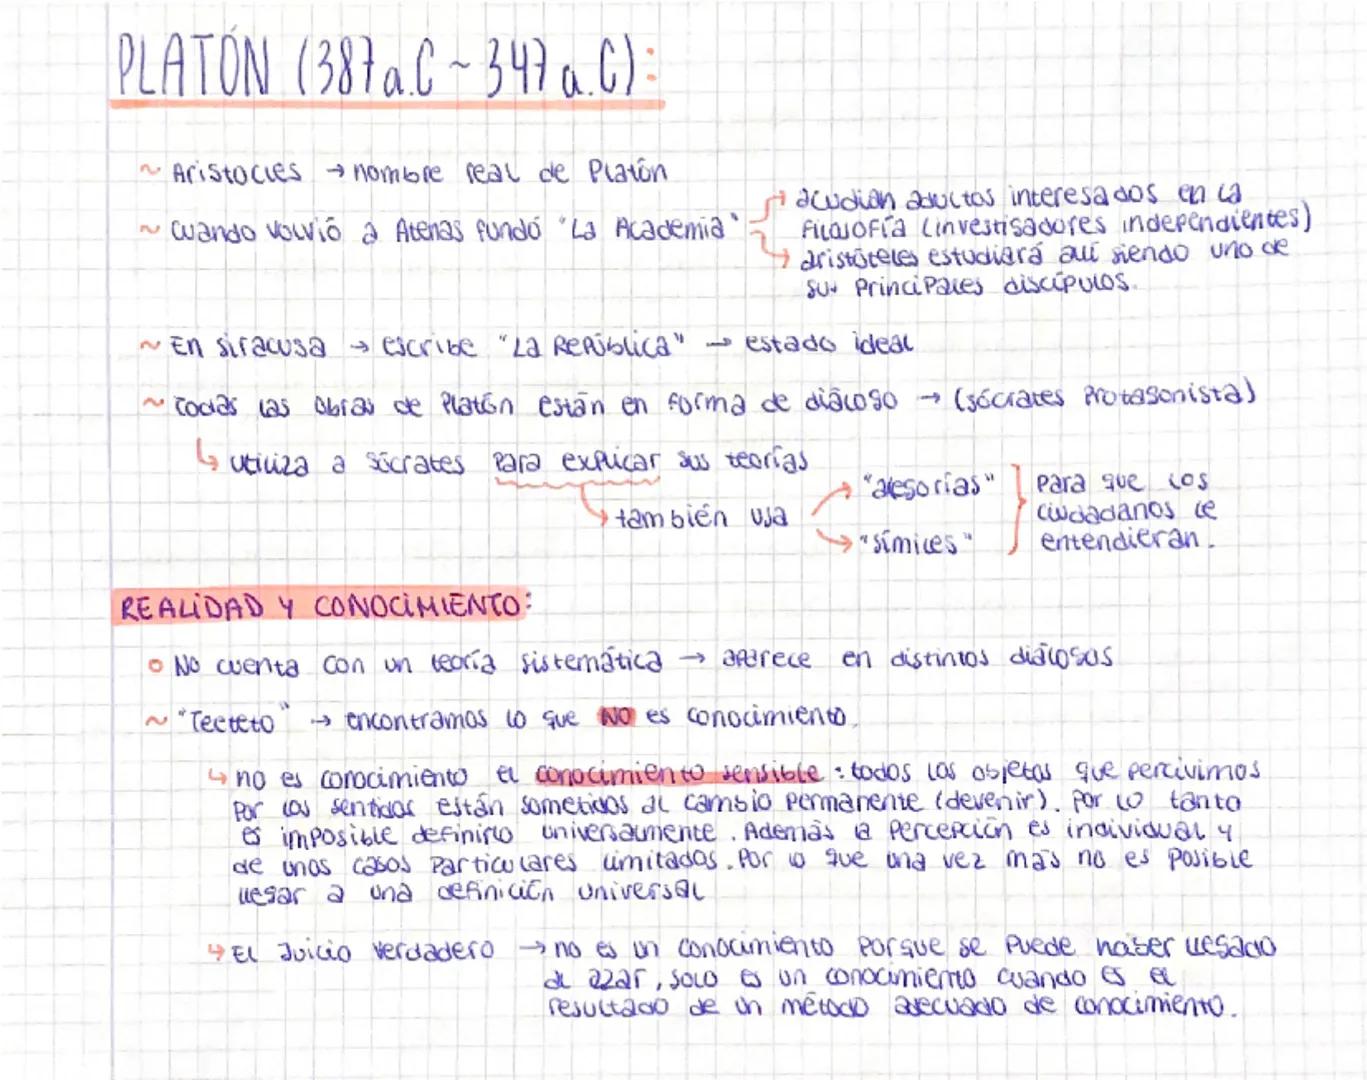 PLATÓN (387a.C ~ 347 a.C):
~ Aristocles → nombre real de Platón
~ cuando volvió a Atenas fundó "La Academia"
→ acudían adultos interesados en la
filosofía (investigadores independientes)
→ aristóteles estudiará allí siendo uno de
sus principales discípulos.
~ En siracusa → escribe "La República" → estado ideal
~ todas las obras de Platón están en forma de diálogo → (sócrates protagonista)
↳ utiliza a sócrates para explicar sus teorías
↳ también usa
→ "alegorías"
→ "símiles"
para que los
ciudadanos le
entendieran.
REALIDAD Y CONOCIMIENTO:
o No cuenta con un teoría sistemática → aparece en distintos diálogos
~ "Teeteto" → encontramos lo que NO es conocimiento.
↳ no es conocimiento el conocimiento sensible: todos los objetos que percivimos
por los sentidos están sometidos al cambio permanente (devenir). Por lo tanto
es imposible definirlo universalmente. Además la percepción es individual y
de unos casos particulares limitados. Por lo que una vez más no es posible
llegar a una definición universal
↳ El Juicio verdadero → no es un conocimiento porque se puede haber llegado
al azar, solo es un conocimiento cuando es el
resultado de un método adecuado de conocimiento.